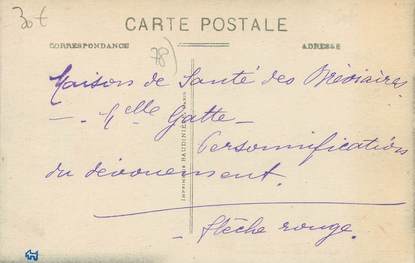 30t
CARTE POSTALE
CORRESPONDANCE
ADRESSE
(78)
Maison de Santé des Bréviaires.
— Melle Gatte —
Personnification
du dévouement.
— flèche rouge.
IMPRIMERIE BAUDINIÈRE, PARIS